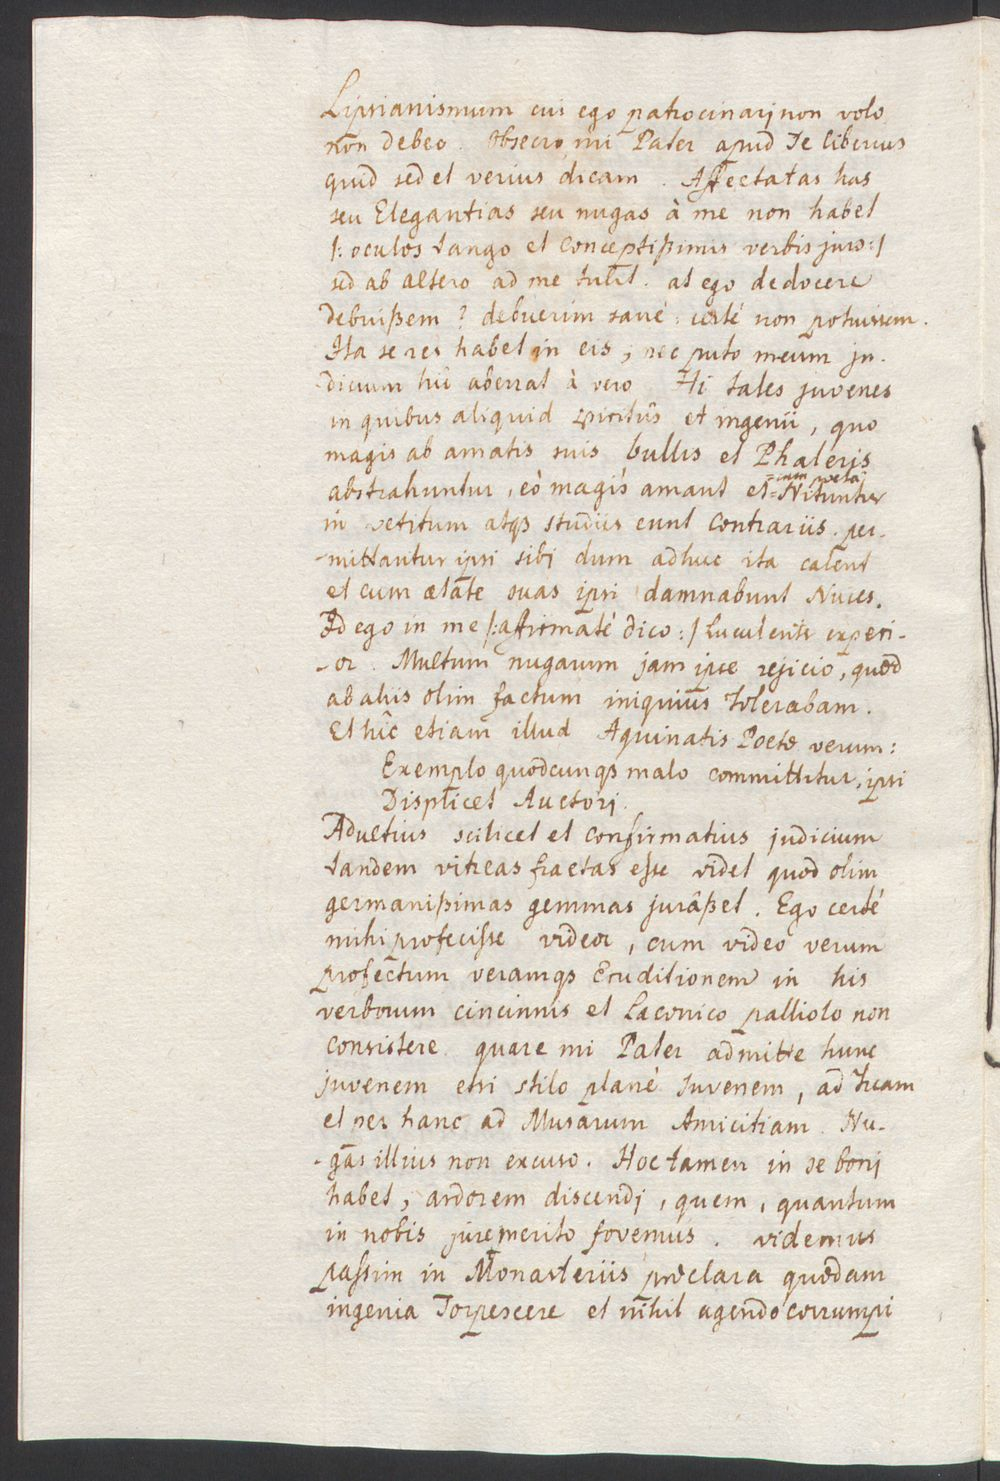 Lipsianismum cui ego patrocinarj non volo
non debeo. Obsecro, mi Pater apud Te liberius
quid sed et verius dicam. Affectatas has
seu Elegantias seu nugas à me non habet
/: oculos tango et conceptißimis verbis juro :/
sed ab altero ad me tulit. at ego dedocere
debuißem? debuerim sanè: certè non potuissem.
Ita se res habet in eis, nec puto meum ju-
-dicium hîc aberrat à vero. Hi tales juvenes
in quibus aliquid spiritûs et ingenii, quo
magis ab amatis suis bullis et Phaleris
abstrahuntur, eò magis amant et =cum poeta= Nituntur
in vetitum atqs studiis eunt contrariis. per-
-mittantur ipsi sibj dum adhuc ita calent
et cum ætate suas ipsi damnabunt Nuces.
Id ego in me /: affirmatè dico :/ luculenter experi-
-or. Multum nugarum jam ipse rejicio, quod
ab aliis olim factum iniquiùs tolerabam.
Et hîc etiam illud Aquinatis Poetæ verum:
Exemplo quodcunqs malo committitur, ipsi
Displicet Auctorj.
Adultius scilicet et confirmatius judicium
tandem vitreas fractas esse videt quod olim
germanißimas gemmas jurâßet. Ego certè
mihi profecisse videor, cum video verum
profectum veramqs Eruditionem in his
verborum cincinnis et Laconico palliolo non
consistere. quare mi Pater admitte hunc
juvenem etsi stilo planè Juvenem, ad tuam
et per hanc ad Musarum Amicitiam. Nu-
-gas illius non excuso. Hoc tamen in se bonj
habet, ardorem discendj, quem, quantum
in nobis jure merito fovemus. videmus
passim in Monasteriis præclara quædam
ingenia Torpescere et nihil agendo corrumpi